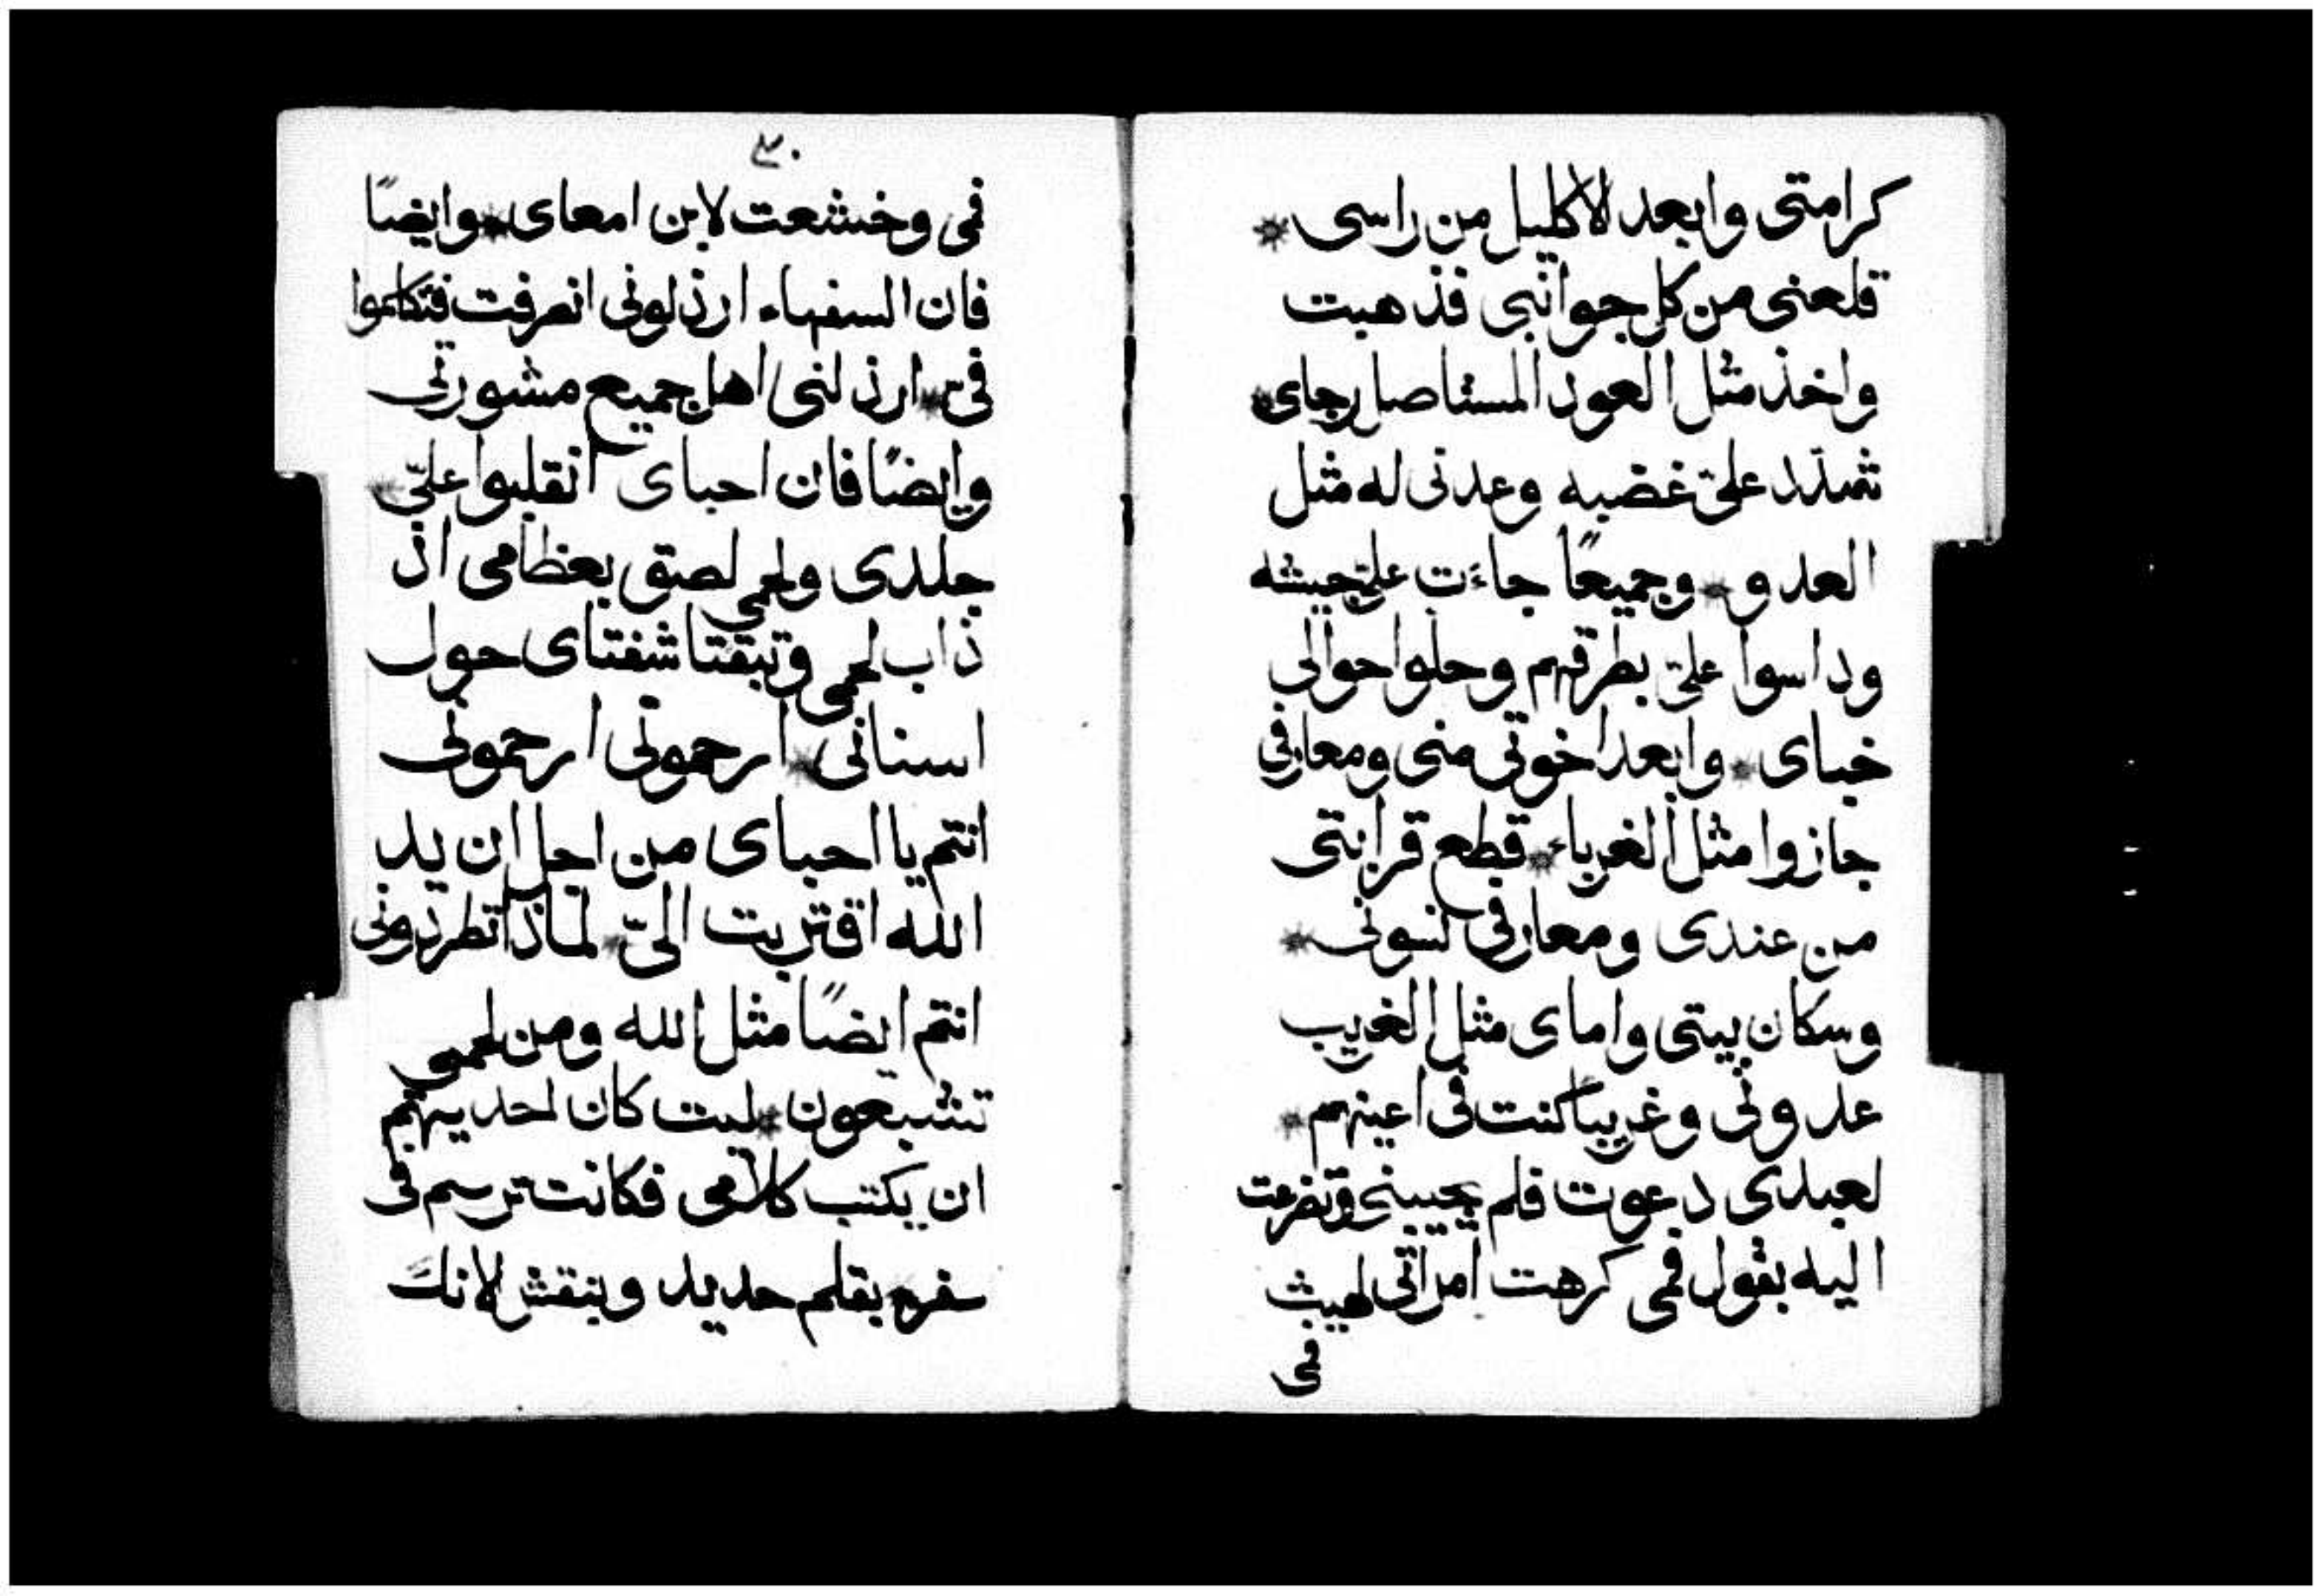 كرامتى وابعد الاكليل من راسى *
قلعنى من كل جوانبى فذهبت
واخذ مثل العود المستاصل رجاى *
شدد علىّ غضبه وعدنى له مثل
العدو * وجميعًا جاءَت علىّ جيشه
وداسوا علىّ بطرقهم وحلوا حوالى
خباى * وابعد اخوتى منى ومعارفى
جازوا مثل الغرباء * قطع قرابتى
من عندى ومعارفى نسونى *
وسكان بيتى واماى مثل الغريب
عدونى وغريبا كنت فى اعينهم *
لعبدى دعوت فلم يجيبنى وتضرعت
اليه بقول فمى كرهت امراتى لهيث
فى
٣٠
فمى وخشعت لابن امعاى * وايضًا
فان السفهاء ارذلونى انصرفت فتكلموا
فىّ * ارذلنى اهل جميع مشورتى
وايضًا فان احباى انقلبوا علىّ *
جلدى ولحمى لصق بعظامى اذ
ذاب لحمى وتبقتا شفتاى حول
اسنانى * ارحمونى ارحمونى
انتم يا احباى من اجل ان يد
الله اقتربت الىّ * لماذا تطردونى
انتم ايضًا مثل الله ومن لحمى
تشبعون * ليت كان لحديهم
ان يكتب كلامى فكانت ترسم فى
سفره بقلم حديد وينقش لانك